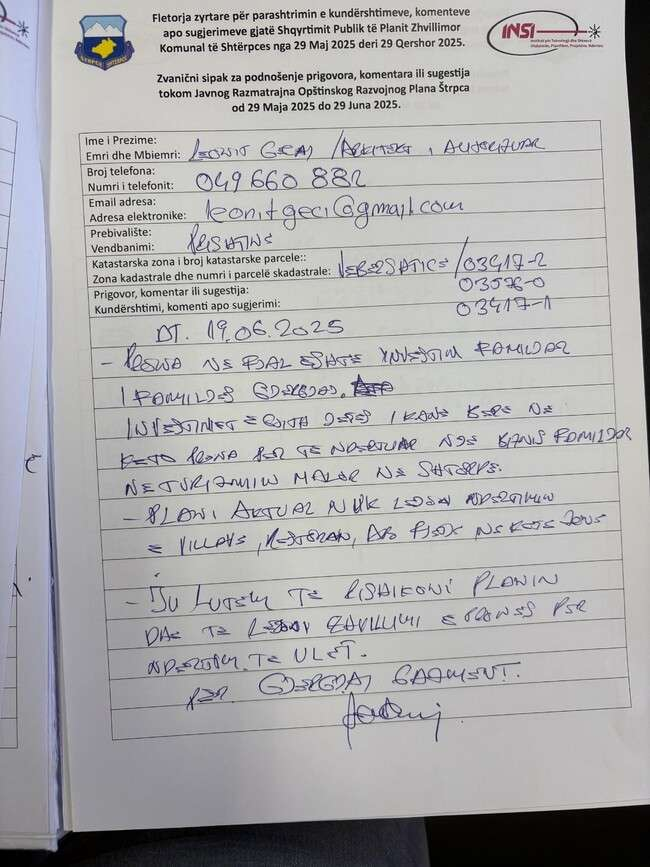 Fletorja zyrtare për parashtrimin e kundërshtimeve, komenteve
apo sugjerimeve gjatë Shqyrtimit Publik të Planit Zhvillimor
Komunal të Shtërpces nga 29 Maj 2025 deri 29 Qershor 2025.
INSI
Zvanični sipak za podnošenje prigovora, komentara ili sugestija
tokom Javnog Razmatrajna Opštinskog Razvojnog Plana Štrpca
od 29 Maja 2025 do 29 Juna 2025.
Ime i Prezime:
Emri dhe Mbiemri: LEONIT GECAJ / ARKITEKT I AUTORIZUAR
Broj telefona:
Numri i telefonit: 049 660 882
Email adresa:
Adresa elektronike: leonitgeci@gmail.com
Prebivalište:
Vendbanimi: PRISHTINE
Katastarska zona i broj katastarske parcele::
Zona kadastrale dhe numri i parcelë skadastrale: /03417-2
Prigovor, komentar ili sugestija: 03576-0
Kundërshtimi, komenti apo sugjerimi: 03417-1
DT. 19.06.2025
- PRONA NE FJALE ESHTE INVESTIM FAMILJAR
I FAMILJES GJERGJAJ.
INVESTIMET E GJITA I KANE BERE NE
KETO PRONA PER TE NDERTUAR NJE FAMILJAR
NE TURIZMIN MALOR NE SHTERPC.
- PLANI AKTUAL NUK LEJON NDERTIMIN
E VILLAVE, RESTORAN, APO NE KETE ZONE
- JU LUTEM TE RISHIKONI PLANIN
DHE TE LEJONI ZHVILLIMI E PRONES PER
NDERTIM TE ULET.
PER. GJERGJAJ